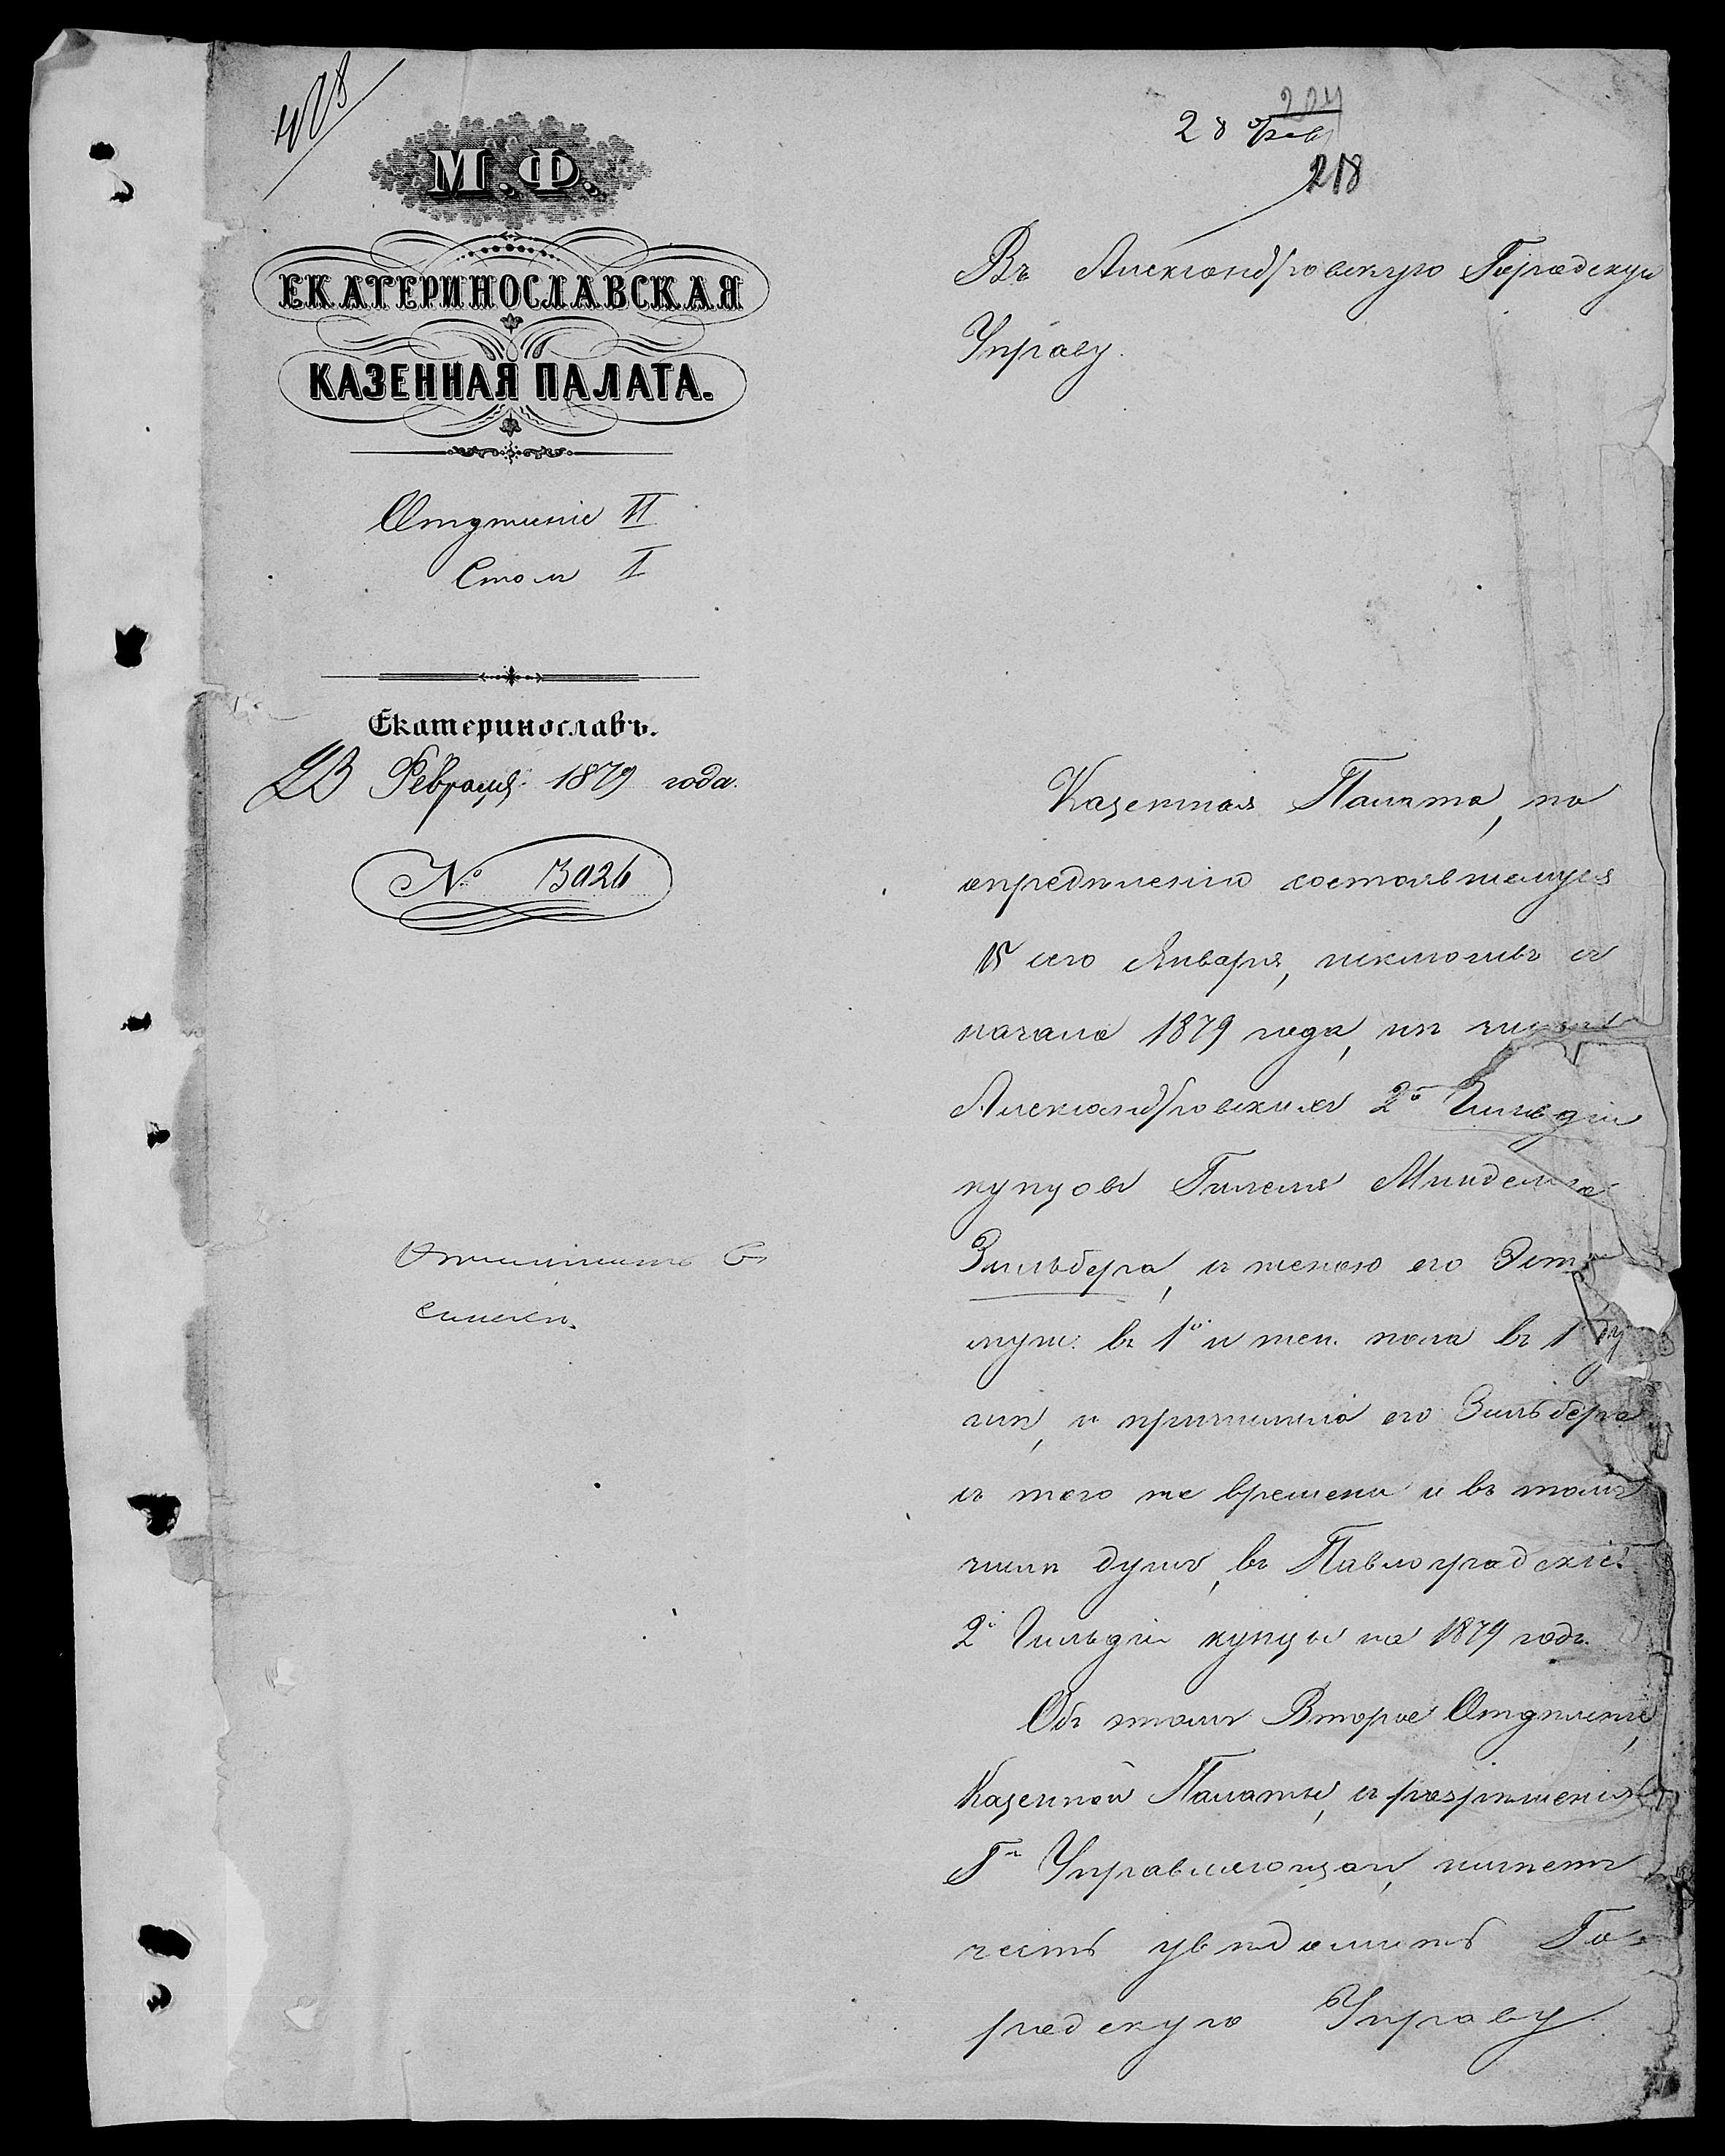 408
204
28 Фев
218
М.Ф.
ЕКАТЕРИНОСЛАВСКАЯ
КАЗЕННАЯ ПАЛАТА.
Отдѣленіе II
Столъ I
Екатеринославъ.
23 Февраля 1879 года.
№ 3026
Отмѣтить въ
спискѣ.
Въ Александровскую Городскую
Управу.
Казенная Палата, по
опредѣленію состоявшемуся
15 сего Января, исключивъ съ
начала 1879 года, изъ числа
Александровскихъ 2й Гильдіи
купцовъ Гилеля Минделя
Зильберга, съ женою его
муж. въ 1й и жен. пола въ 1й ду
шѣ, и причислила его Зильберга
съ того же времени и въ томъ
числѣ душъ, въ Павлоградскіе
2й Гильдіи купцы на 1879 годъ.
Объ этомъ Второе Отдѣленіе
Казенной Палаты, съ разрѣшенія
Гна Управляющаго, имѣетъ
честь увѣдомить Го-
родскую Управу.